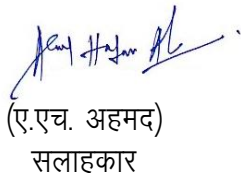 (ए.एच. अहमद)
सलाहकार